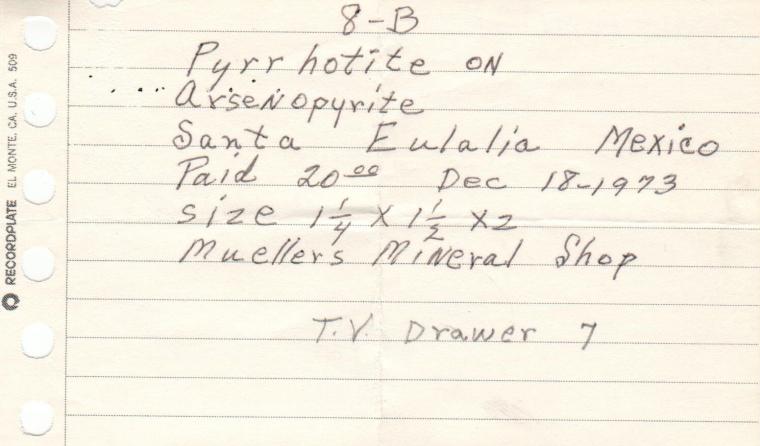 8-B
Pyrrhotite ON
Arsenopyrite
Santa Eulalia Mexico
Paid 20⁰⁰ Dec 18-1973
size 1 1/4 X 1 1/2 X 2
Muellers Mineral Shop
T.V. Drawer 7
RECORDPLATE EL MONTE, CA. U.S.A. 509